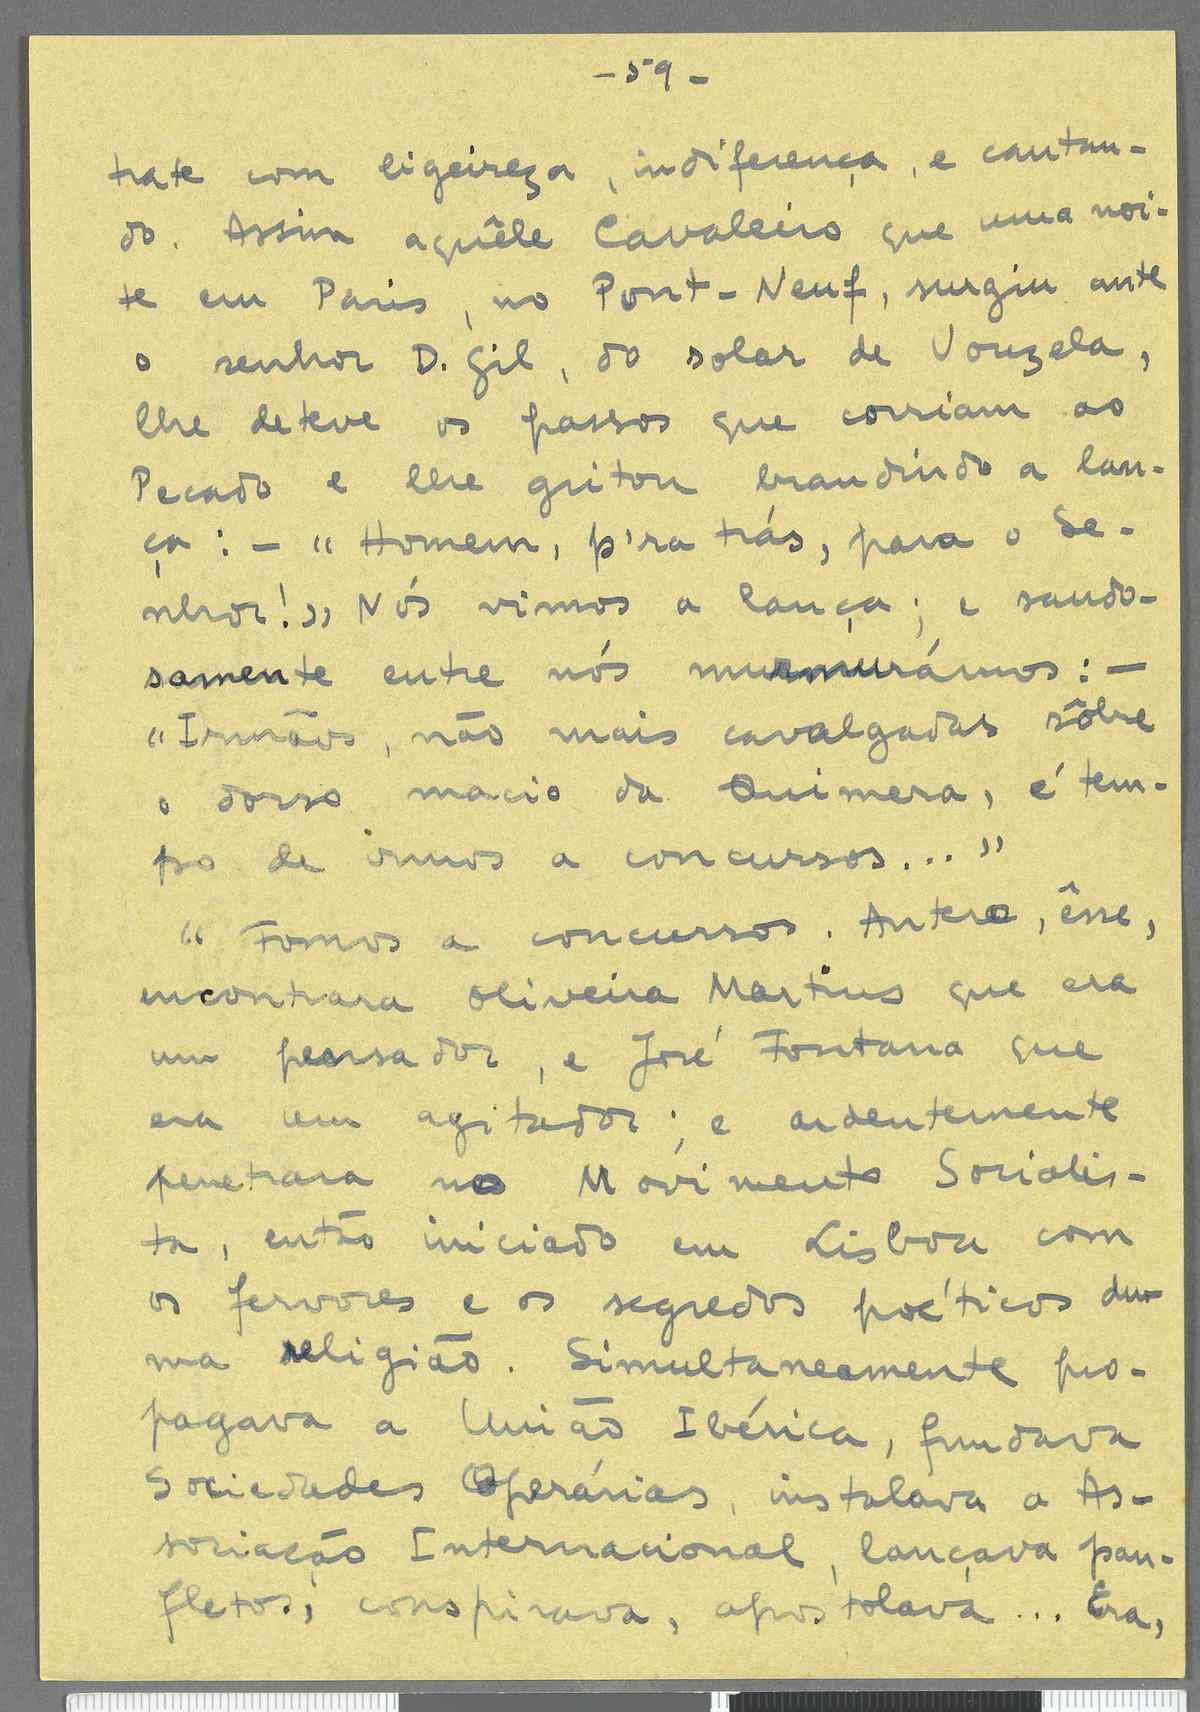 - 59 -
trate com ligeireza, indiferença, e cantan-
do. Assim aquêle Cavaleiro que uma noi-
te em Paris, no Pont-Neuf, surgiu ante
o senhor D. Gil, do solar de Vouzela,
lhe deteve os passos que corriam ao
Pecado e lhe gritou brandindo a lan-
ça: - "Homem, p'ra trás, para o Se-
nhor!" Nós vimos a lança; e saudo-
samente entre nós murmurámos: -
"Irmãos, não mais cavalgadas sôbre
o dorso macio da Quimera, é tem-
po de irmos a concursos..."
"Fomos a concursos. Antero, êsse,
encontrara Oliveira Martins que era
um pensador, e José Fontana que
era um agitador; e ardentemente
penetrara no Movimento Socialis-
ta, então iniciado em Lisboa com
os fervores e os segredos poéticos du-
ma religião. Simultaneamente pro-
pagava a União Ibérica, fundava
Sociedades Operárias, instalava a As-
sociação Internacional, lançava pan-
fletos; conspirava, apostolava... Era,